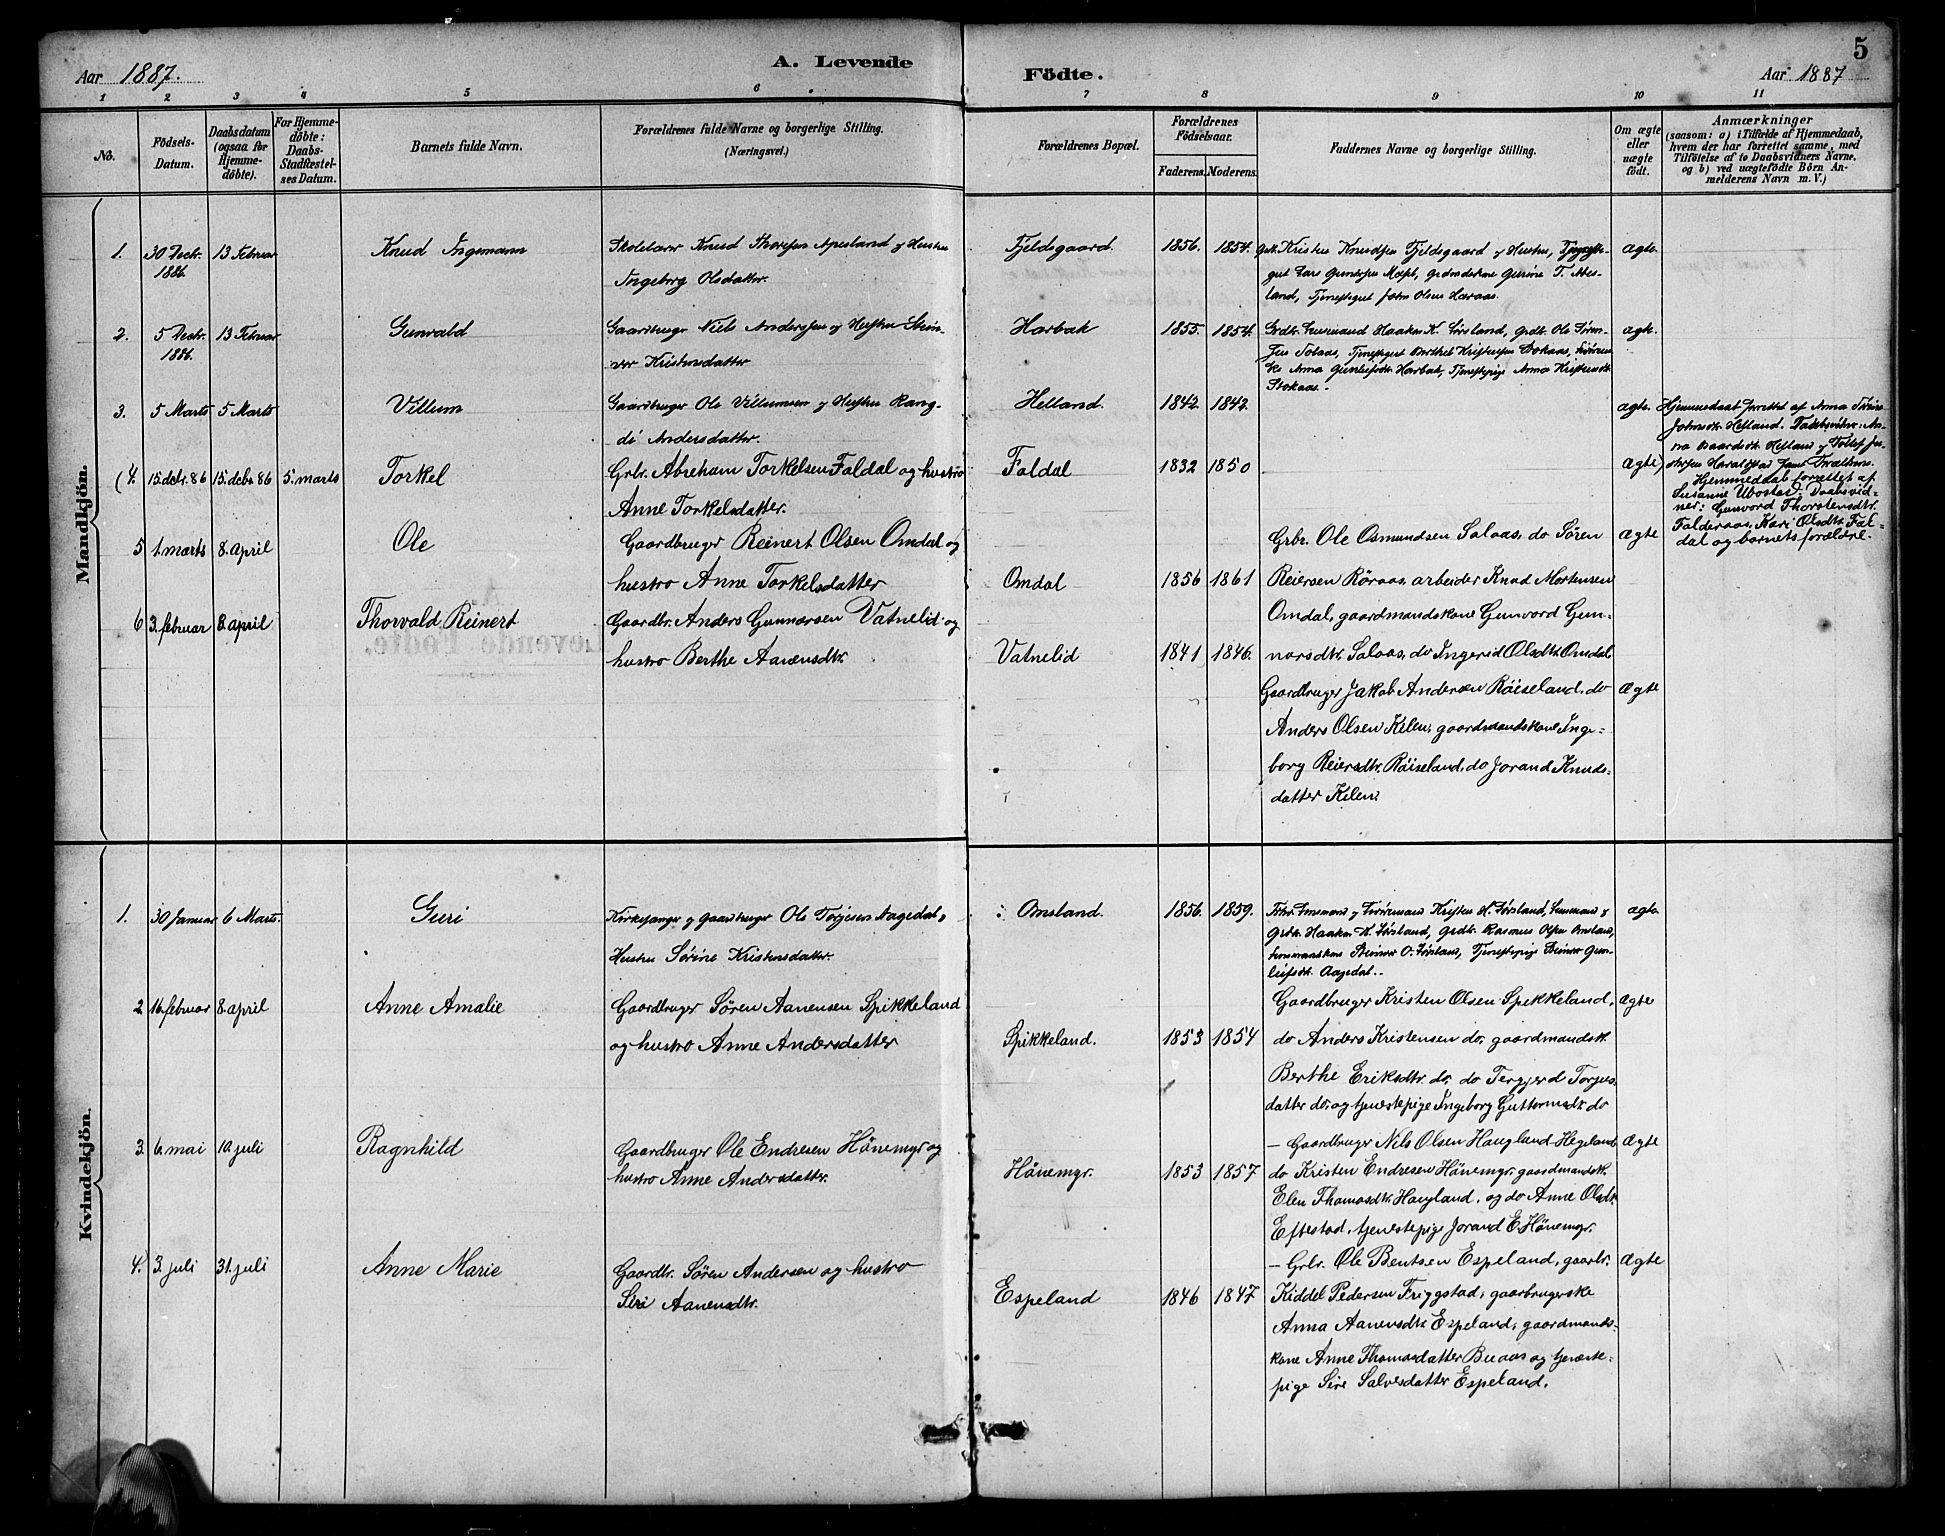 Aar 1887.
A. Levende
Födte.
Aar 1887
5
1 2 3 4 5 6 7 8 9 10 11
No.
Födsels-
Datum.
Daabsdatum
(ogsaa for
Hjemme-
döbte).
For Hjemme-
döbte:
Daabs-
Stadfæstel-
ses Datum.
Barnets fulde Navn.
Forældrenes fulde Navne og borgerlige Stilling.
(Næringsvei.)
Forældrenes Bopæl.
Forældrenes
Födselsaar.
Faderens. Moderens.
Faddernes Navne og borgerlige Stilling.
Om ægte
eller
uægte
født.
Anmærkninger
(saasom: a) i Tilfælde af Hjemmedaab,
hvem der har forrettet samme, med
Tilföielse af to Daabsvidners Navne,
og b) ved uægtefödte Börn An-
melderens Navn m. V.)
Mandkjön.
1. 30 Decbr. 1886. 13 Februar Knud Ingemann
Skolelærer Knud Thorsen Apesland og Hustru
Ingeborg Olsdatter.
Fjeldsgaard. 1856. 1854.
Kristen Knudsen Fjeldsgaard og Hustru,
land, Tjenestegut John Olsen Haraas.
ægte.
2. 5 Decbr. 1886. 13 Februar Gunvald
Gaardbruger Niels Anderssen og Hustru Stein-
vor Kristensdatter
Harbak 1855. 1854.
Haaken K. Førsland, Grdb. Ole Søren-
sen Solaas, Tjenestegut Berthel Kristensen Stokaas,
Anna Gunleifsdtr. Harbak, Tjenestepige Anna Kristensdtr.
Stokaas.
ægte.
3. 5 Marts 5 Marts Villum
Gaardbruger Ole Villumsen og Hustru Rang-
di Andersdatter.
Helland. 1842 1842.
ægte.
Hjemmedaab forrettet af Anna
Johnsdtr. Helland. Daabsvidner: An-
na Baardsdtr. Helland og Tollef
(4. 15. decbr. 86 15. decbr. 86 5. marts Torkel
Grbr. Abreham Torkelsen Faldal og hustro
Anne Torkelsdatter.
Faldal 1832 1850
ægte)
Hjemmedaab forrettet af
Susanne Ubostad. Daabsvid-
ner: Gunvord Thorstensdtr.
Falderaas, Kari Olsdtr. Fal-
dal og barnets forældre.
5 1. marts 8. april Ole
Gaardbruger Reinert Olsen Omdal og
hustro Anne Torkelsdatter
Omdal 1856 1861
Grbr. Ole Osmundsen Salaas, do Sören
Reiersen Röraas, arbeider Knud Mortensen
Omdal, gaardmandskone Gunvord Gun-
narsdtr. Salaas, do Ingerid Olsdtr. Omdal
ægte
6 3. februar 8. april Thorvald Reinert
Gaardbr. Anders Gunnarsen Vatnelid og
hustro Berthe Aanensdtr.
Vatnelid 1841 1846.
Gaardbruger Jakob Andersen Röiseland, do
Anders Olsen Kilen, gaardmandskone Inge-
borg Reiersdtr. Röiseland, do Jorand Knuds-
datter Kilen.
Ægte
Kvindekjön.
1. 30 Januar 6 Marts. Guri
Kirkesanger og Gaardbruger Ole Torjesen Aagedal,
Hustru Sørine Kristensdatter.
Omsland. 1856. 1859.
Kristen H. Førsland,
Grdb. Haaken K. Førsland, Grdb. Rasmus Olsen Omsland,
Steinvor O. Førsland, Tjenestepige Steinvor Gun-
leifsdtr. Aagedal.
ægte.
2 16. februar 8. april Anne Amalie
Gaardbruger Sören Aanensen Spikkeland
og hustro Anne Andersdatter
Spikkeland. 1853 1854
Gaardbruger Kristen Olsen Spikkeland,
do Anders Kristensen do, gaardmandsk.
Berthe Eriksdtr. do, do Tergjerd Torjus-
datter do, og tjenestepige Ingeborg Guttormsdtr. do
ægte
3. 6. mai 10 juli Ragnhild
Gaardbruger Ole Endresen Hönemyr og
hustro Anne Andersdatter.
Hönemyr. 1853 1857
– Gaardbruger Nils Olsen Haugland Hegeland,
do Kristen Endresen Hönemyr, gaardmandsk.
Elen Thomasdtr. Haugland, og do Anne Olsdtr.
Eftestad, tjenestepige Jorand E. Hönemyr.
Ægte
4.) 3. juli 31. juli Anne Marie
Gaardbr. Sören Andersen og hustro
Siri Aanensdtr.
Espeland 1846 1847
– Grbr. Ole Bentsen Espeland, gaardbr.
Kiddel Pedersen Friggstad, gaarbrugerske
Anna Aanensdtr. Espeland, gaardmands-
kone Anne Thomasdatter Buaas og tjeneste-
pige Siri Salvesdatter Espeland.
Ægte